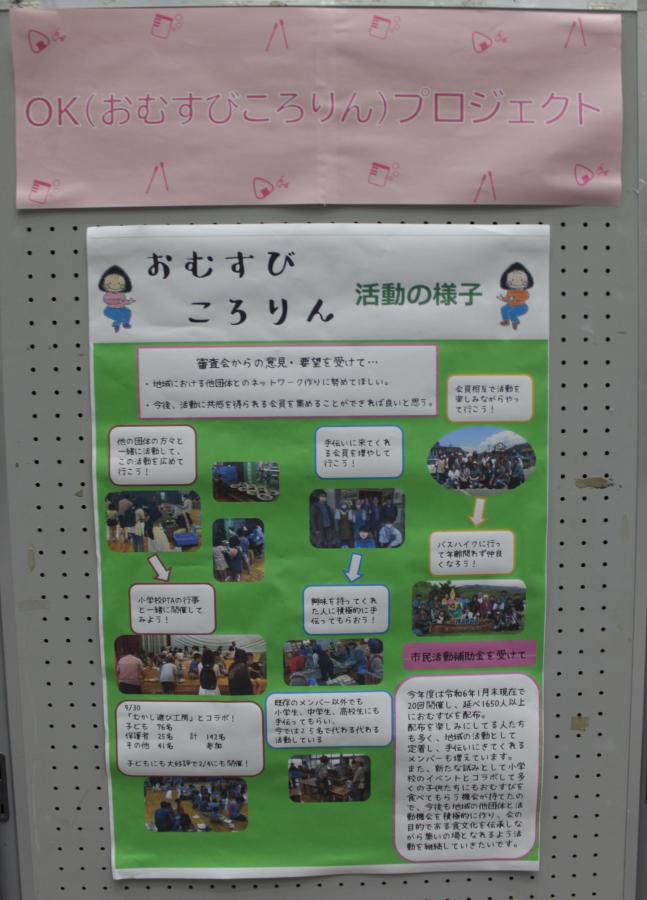 OK(おむすびころりん)プロジェクト
おむすび
ころりん
活動の様子
審査会からの意見・要望を受けて…
・地域における他団体とのネットワーク作りに努めてほしい。
・今後、活動に共感を得られる会員を集めることができれば良いと思う。
他の団体の方々と
一緒に活動して、
この活動を広めて
行こう！
小学校PTAの行事
と一緒に開催して
みよう！
9/30
「むかし遊び工房」とコラボ！
子ども 76名
保護者 25名 計 142名
その他 41名 参加
子どもにも大好評で2/4にも開催！
手伝いに来てくれ
る会員を増やして
行こう！
興味を持ってくれ
た人に積極的に手
伝ってもらおう！
既存のメンバー以外でも
小学生、中学生、高校生にも
手伝ってもらい、
今では25名で代わる代わる
活動している
会員相互で活動を
楽しみながらやっ
て行こう！
バスハイクに行っ
て年齢問わず仲良
くなろう！
市民活動補助金を受けて…
今年度は令和6年1月末現在で
20回開催し、延べ1650人以上
におむすびを配布。
配布を楽しみにしてる人たち
も多く、地域の活動として
定着し、手伝いにきてくれる
メンバーも増えています。
また、新たな試みとして小学
校のイベントとコラボして多
くの子供たちにもおむすびを
食べてもらう機会が持てたの
で、今後も地域の他団体と活
動機会を積極的に作り、会の
目的である食文化を伝承しな
がら集いの場となれるよう活
動を継続していきたいです。